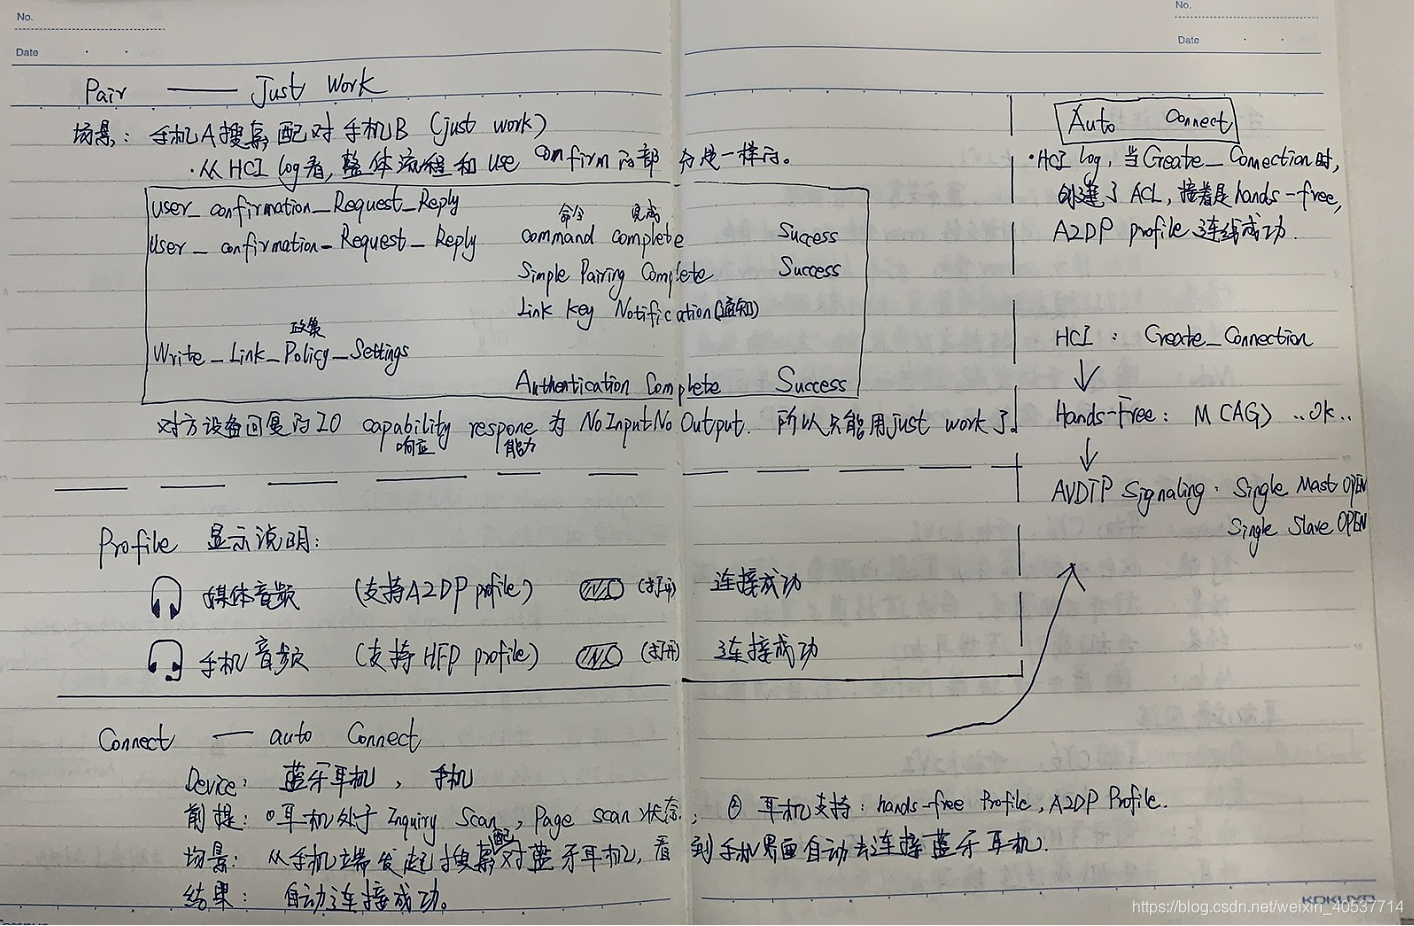 No.
Date
Pair —— Just Work
场景: 手机A搜索配对手机B (just work)
·从HCI log看,整体流程和use confirm的部分是一样的。
User_confirmation_Request_Reply
命令 完成
User_confirmation_Request_Reply command complete Success
Simple Pairing Complete Success
Link key Notification(通知)
政策
Write_Link_Policy_Settings
Authentication Complete Success
对方设备回复的IO capability respone为NoInputNoOutput. 所以只能用just work了.
响应 能力
Profile 显示说明:
媒体音频 (支持A2DP profile) (打开) 连接成功
手机音频 (支持HFP profile) (打开) 连接成功
Connect — auto Connect
Device: 蓝牙耳机, 手机
前提: ①耳机处于Inquiry Scan, Page scan状态, ② 耳机支持: hands-free Profile, A2DP Profile.
场景: 从手机端发起搜索配对蓝牙耳机, 看到手机界面自动去连接蓝牙耳机.
结果: 自动连接成功。
No.
Date
Auto Connect
·HCI log, 当Create_Connection时,
创建了ACL, 接着是hands-free,
A2DP profile连线成功.
HCI: Create_Connection
↓
Hands-Free: M(AG) ..Ok..
↓
AVDTP Signaling: Single Mast OPEN
Single Slave OPEN
KOKUYO
https://blog.csdn.net/weixin_40537714